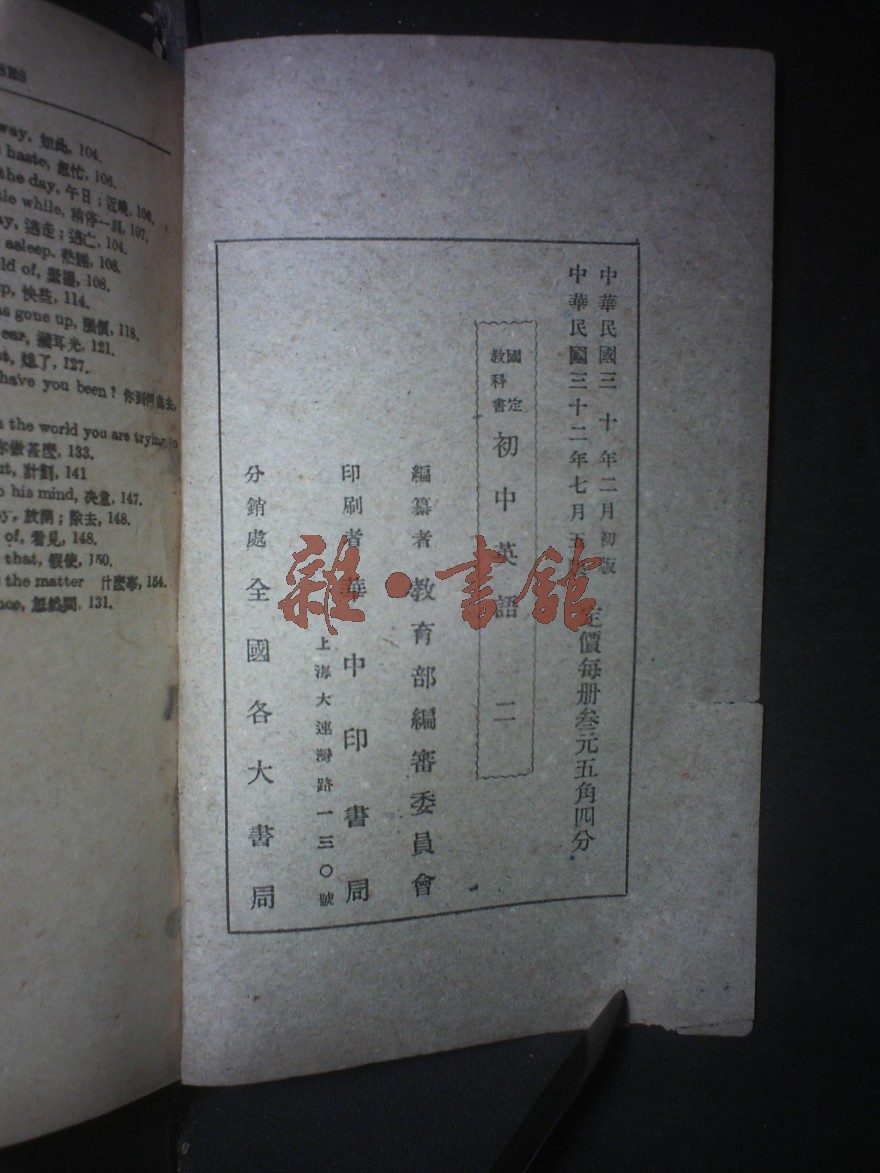 way, 如此, 104.
haste, 怱忙, 106.
the day, 午日；近晚, 106.
tle while, 稍停一刻, 107.
ay, 逃走；逃亡, 104.
asleep. 熟睡, 108.
ld of, 108.
p, 快些, 114.
s gone up, 漲價, 118.
ear, 121.
t, 熄了, 127.
have you been? 你到何處去,
n the world you are trying to
你做甚麼, 133.
ut, 計劃, 141
o his mind, 决意, 147.
y, 放開；除去, 148.
of, 看見, 148.
that, 假使, 150.
the matter 什麽事, 154.
nce, 忽然間, 131.
中華民國三十年二月初版
中華民國三十二年七月五版
定價每册叁元五角四分
國定教科書 初中英語 二
編纂者 教育部編審委員會
印刷者 華中印書局
上海大連灣路一三〇號
分銷處 全國各大書局
雜·書館